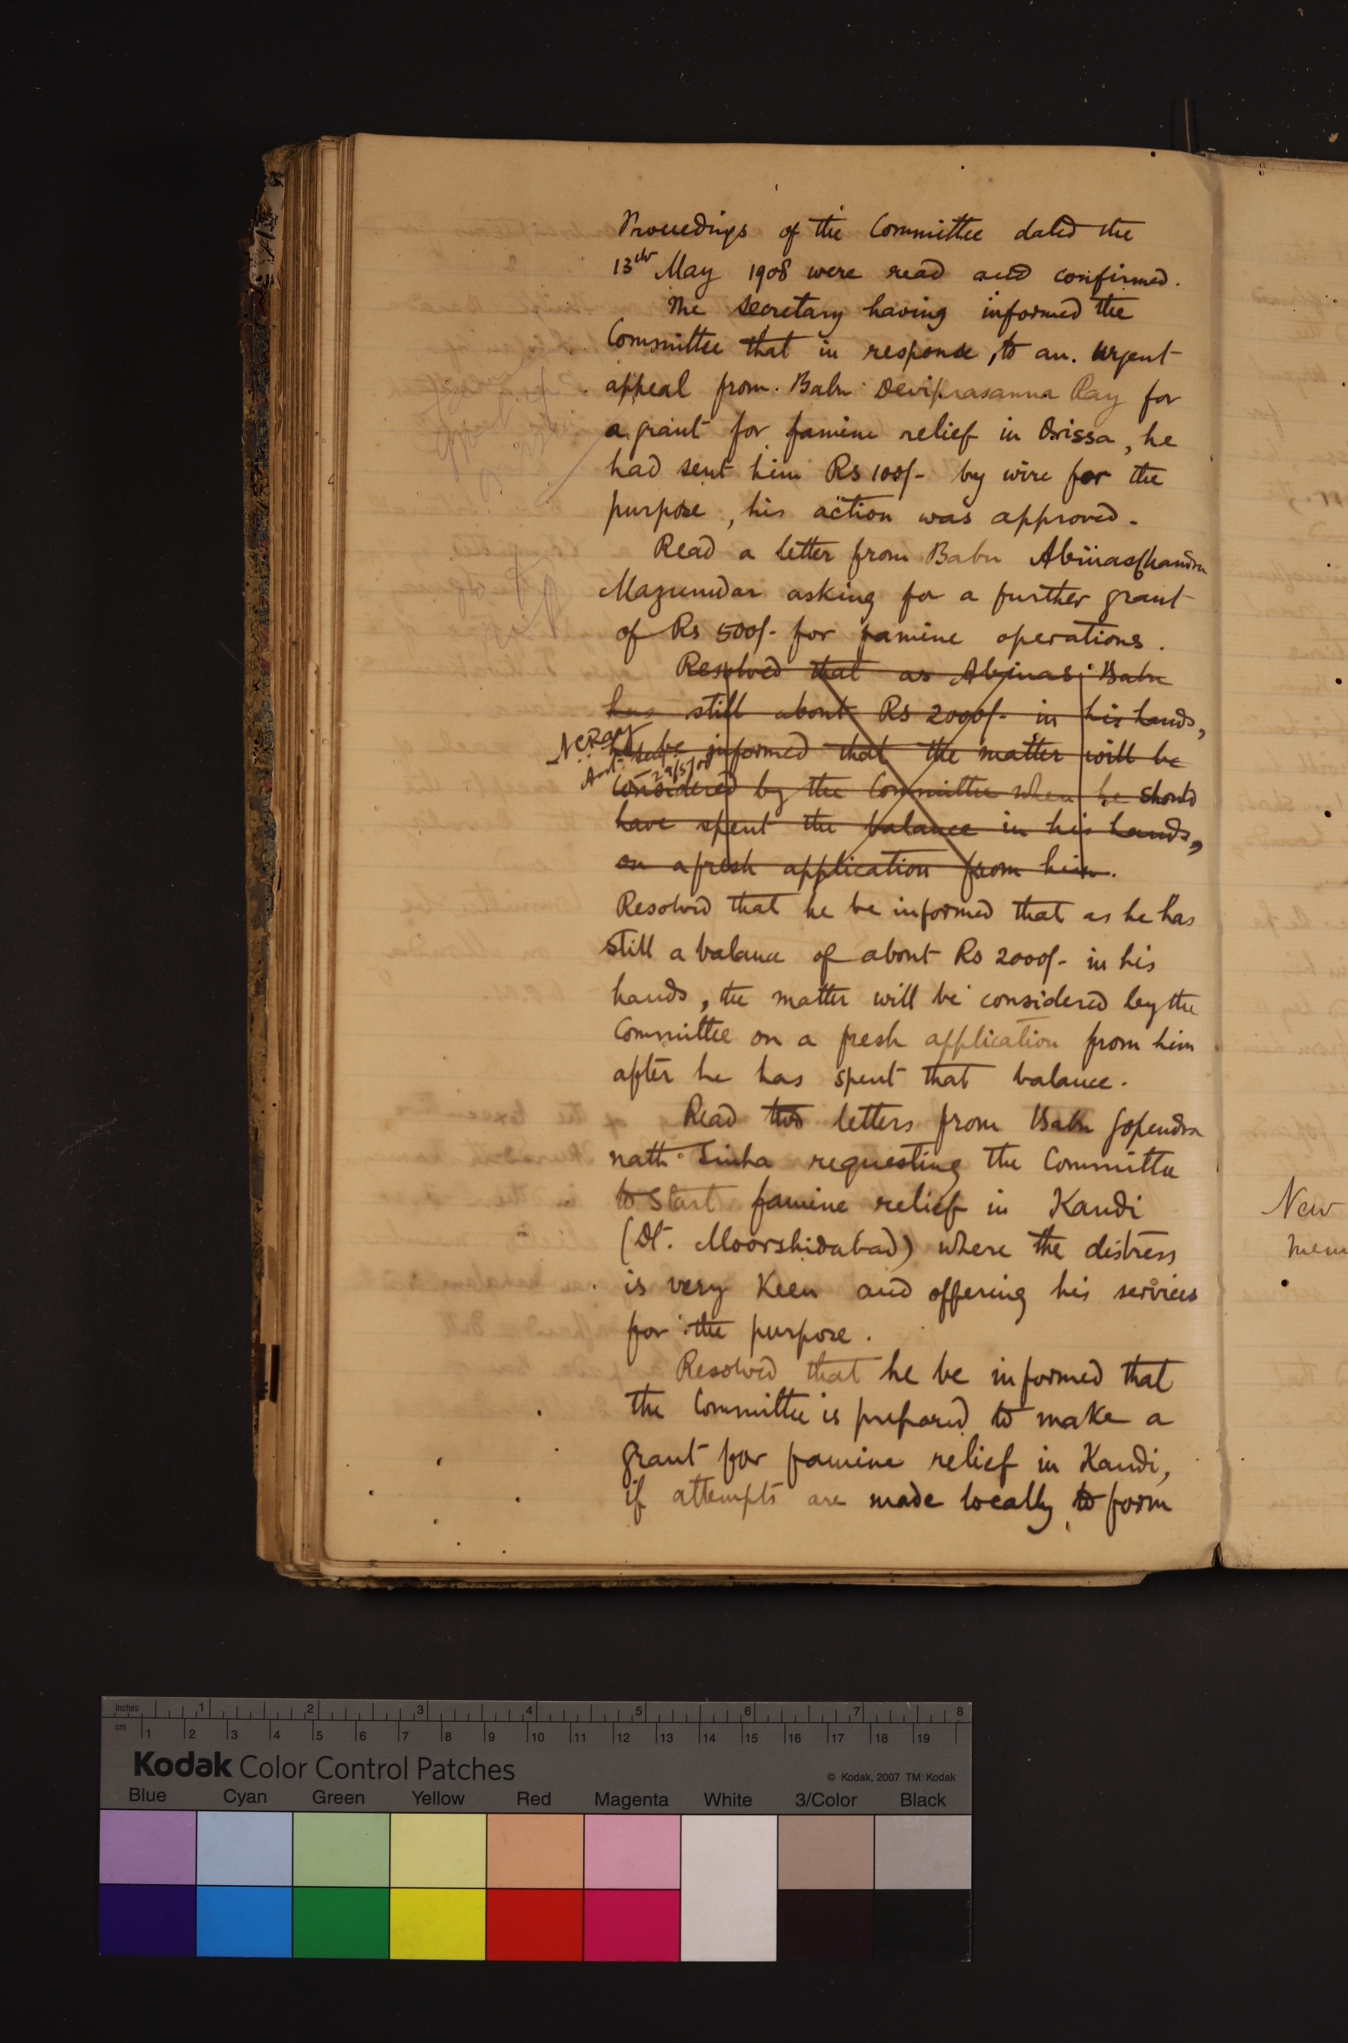 Proceedings of the Committee dated the
13th May 1908 were read and confirmed.
The Secretary having informed the
Committee that in response, to an urgent
appeal from Babu Deviprasanna Ray for
a grant for famine relief in Orissa, he
had sent him Rs 100/- by wire for the
purpose, his action was approved.
Read a letter from Babu Abinas Chandra
Mazumdar asking for a further grant
of Rs 500/- for famine operations.
Resolved that as Abinas Babu
has still about Rs 2000/- in his hands,
he be informed that the matter will be
considered by the Committee when he should
have spent the balance in his hands,
on a fresh application from him.
N C Ray
29/5/08
Resolved that he be informed that as he has
still a balance of about Rs 2000/- in his
hands, the matter will be considered by the
Committee on a fresh application from him
after he has spent that balance.
Read two letters from Babu Gopendra
nath Sinha requesting the Committee
to start famine relief in Kandi
(Dt. Moorshidabad) where the distress
is very Keen and offering his services
for the purpose.
Resolved that he be informed that
the Committee is prepared to make a
grant for famine relief in Kandi,
if attempts are made locally to form
New
inches 1 2 3 4 5 6 7 8
cm 1 2 3 4 5 6 7 8 9 10 11 12 13 14 15 16 17 18 19
Kodak Color Control Patches
© Kodak, 2007 TM: Kodak
Blue Cyan Green Yellow Red Magenta White 3/Color Black